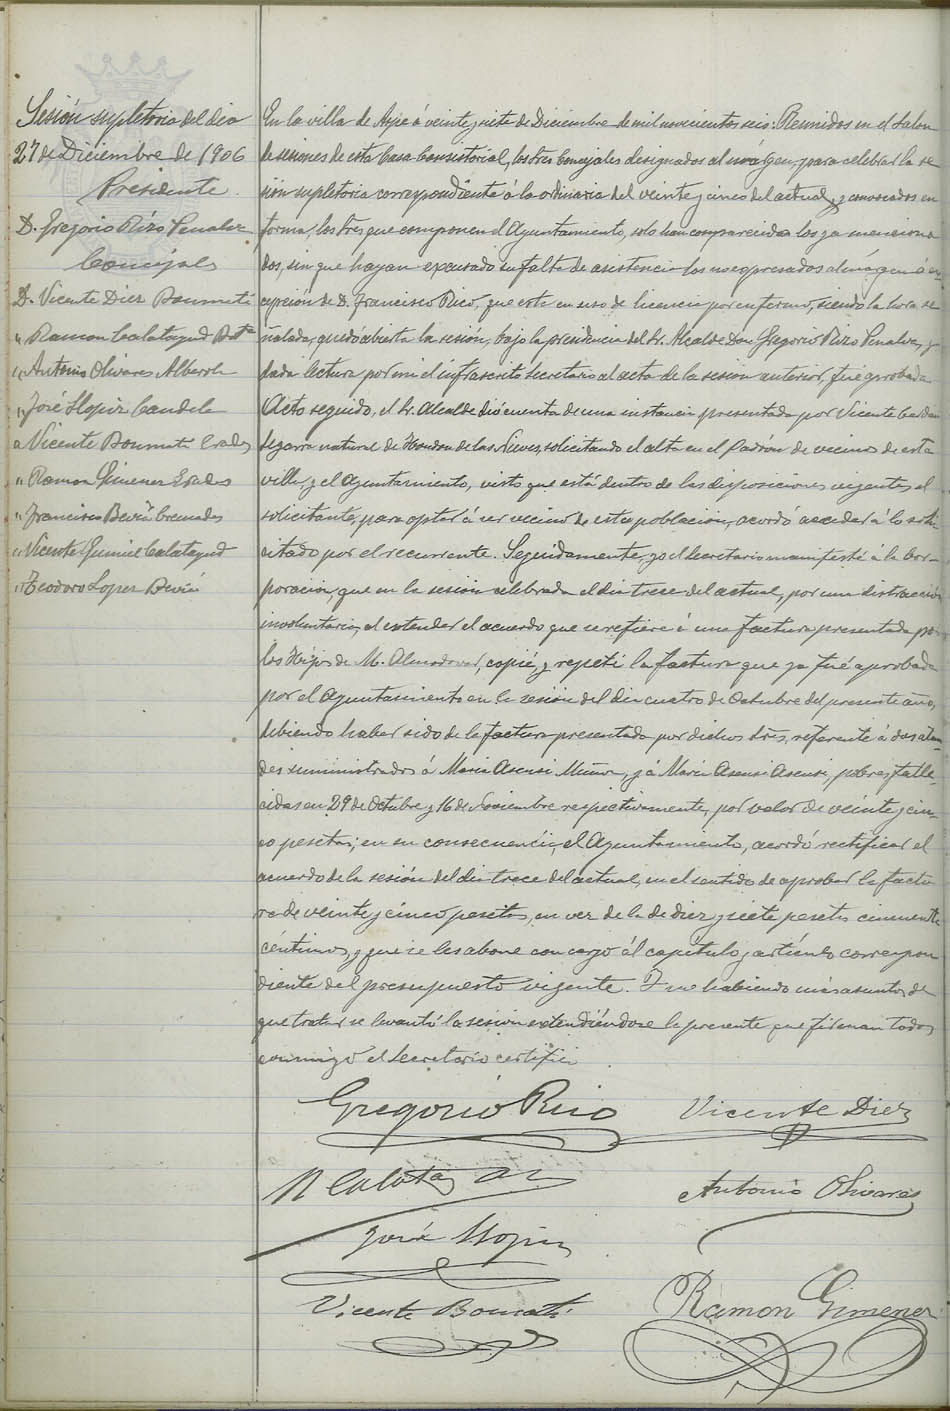 Sesión supletoria del dia
27 de Diciembre de 1906
Presidente
D. Gregorio Rizo Penalva
Concejales
D. Vicente Diez Boumati
" Ramon Calatayud
" Antonio Olivares Alberola
" José Llopiz Candela
" Vicente Boumati
" Ramon Gimenez
" Francisco Beviá Cremades
" Vicente Gumiel Calatayud
" Teodoro Lopez Beviá
En la villa de Aspe á veinte y siete de Diciembre de mil novecientos seis: Reunidos en el Salon
de sesiones de esta Casa Consistorial, los Sres Concejales designados al márgen, para celebrar la se
sión supletoria correspondiente á la ordinaria del veinte y cinco del actual, y convocados en
forma, los Sres que componen el Ayuntamiento, solo han comparecido los ya menciona
dos, sin que hayan excusado su falta de asistencia los no expresados al márgen á ex
cepción de D. Francisco Rico, que está en uso de licencia por enfermo, siendo la hora se
ñalada, quedó abierta la sesión, bajo la presidencia del Sr. Alcalde Don Gregorio Rizo Penalva, y
dada lectura por mi el infrascrito Secretario al acta de la sesion anterior, fué aprobada
Acto seguido, el Sr. Alcalde dió cuenta de una instancia presentada por Vicente
Segarra natural de Hondon de las Nieves, solicitando el alta en el Padrón de vecinos de esta
villa, y el Ayuntamiento, visto que está dentro de las disposiciones vigentes el
solicitante, para optar á ser vecino de esta poblacion, acordó acceder á lo soli
citado por el recurrente. Seguidamente, yo el Secretario manifesté á la Cor-
poracion, que en la sesión celebrada el dia trece del actual, por una distracción
involuntaria, al estender el acuerdo que se refiere á una factura presentada por
los Hijos de M. Almodovar, copié, y repetí la factura que ya fué aprobada
por el Ayuntamiento en la sesión del dia cuatro de Octubre del presente año,
debiendo haber sido de la factura presentada por dichos Sres, referente á dos atau-
des suministrados á Maria Asensi Muñoz, y á Maria Asensi Asensi, pobres, falle-
cidas en 29 de Octubre y 16 de Noviembre respectivamente, por valor de veinte y cin-
co pesetas; en su consecuencia, el Ayuntamiento, acordó rectificar el
acuerdo de la sesión del dia trece del actual, en el sentido de aprobar la factu
ra de veinte y cinco pesetas, en vez de la de diez y siete pesetas cincuenta
céntimos, y que se les abone con cargo al capítulo y artículo correspon
diente del presupuesto vigente. Y no habiendo más asuntos de
que tratar se levantó la sesion extendiéndose la presente que firman todos,
conmigo el Secretario certifico
Gregorio Rizo Vicente Diez
R Calatayud Antonio Olivares
José Llopiz
Vicente Boumati Ramon Gimenez